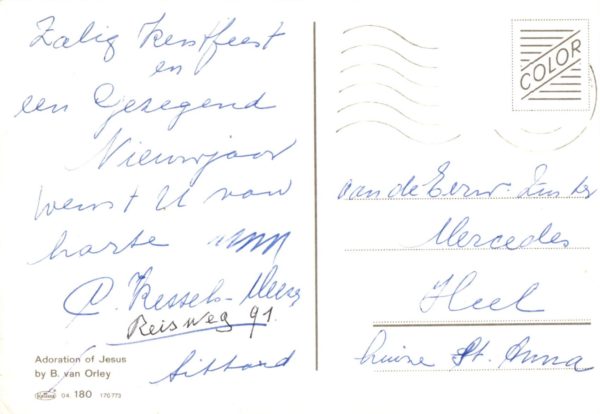 Zalig Kerstfeest
en
een Gezegend
Nieuwjaar
wenst U van
harte
Kessels-
Reisweg 91.
Sittard
Adoration of Jesus
by B. van Orley
04. 180 170773
COLOR
aan de Eerw. Zuster
Mercedes
Heel
huize St. Anna